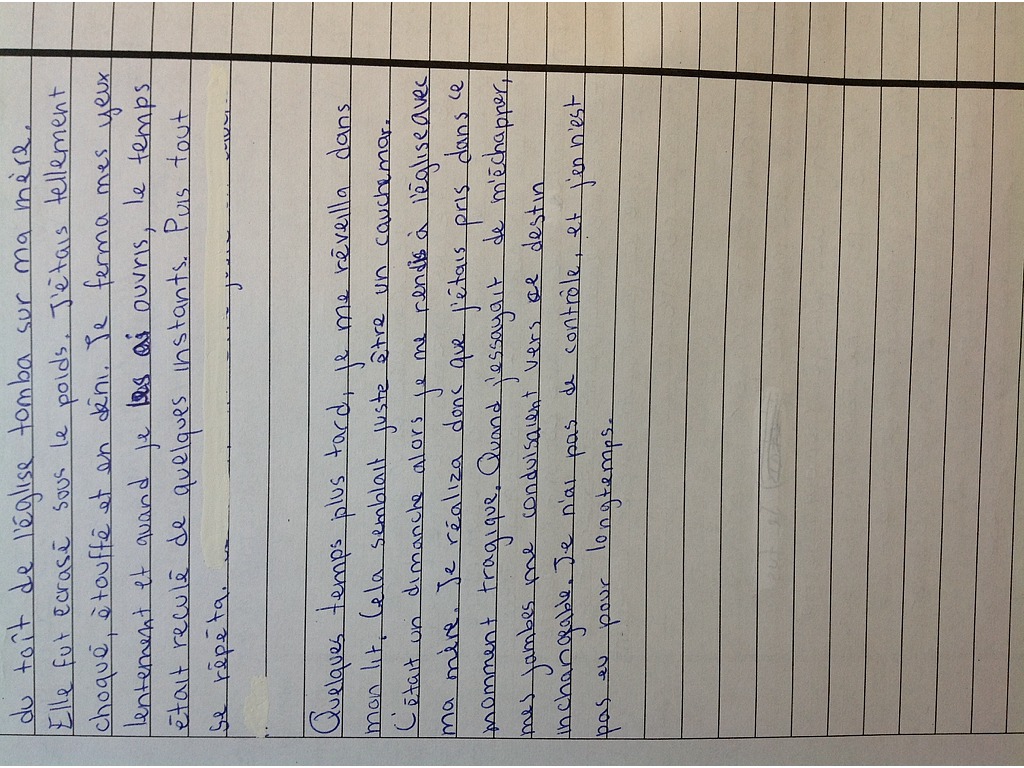 du toît de l'église tomba sur ma mère.
Elle fut ecrasé sous le poids. J'étais tellement
choqué, étouffé et en déni. Je ferma mes yeux
lentement et quand je les ouvris, le temps
était reculé de quelques instants. Puis tout
se répéta.
Quelques temps plus tard, je me réveilla dans
mon lit. Cela semblait juste être un cauchemar.
C'était un dimanche alors je me rendis à l'église avec
ma mère. Je réaliza donc que j'étais pris dans ce
momment tragique. Quand j'essayait de m'échapper,
mes jambes me conduisaient vers ce destin
inchangable. Je n'ai pas de contrôle, et j'en n'est
pas eu pour longtemps.